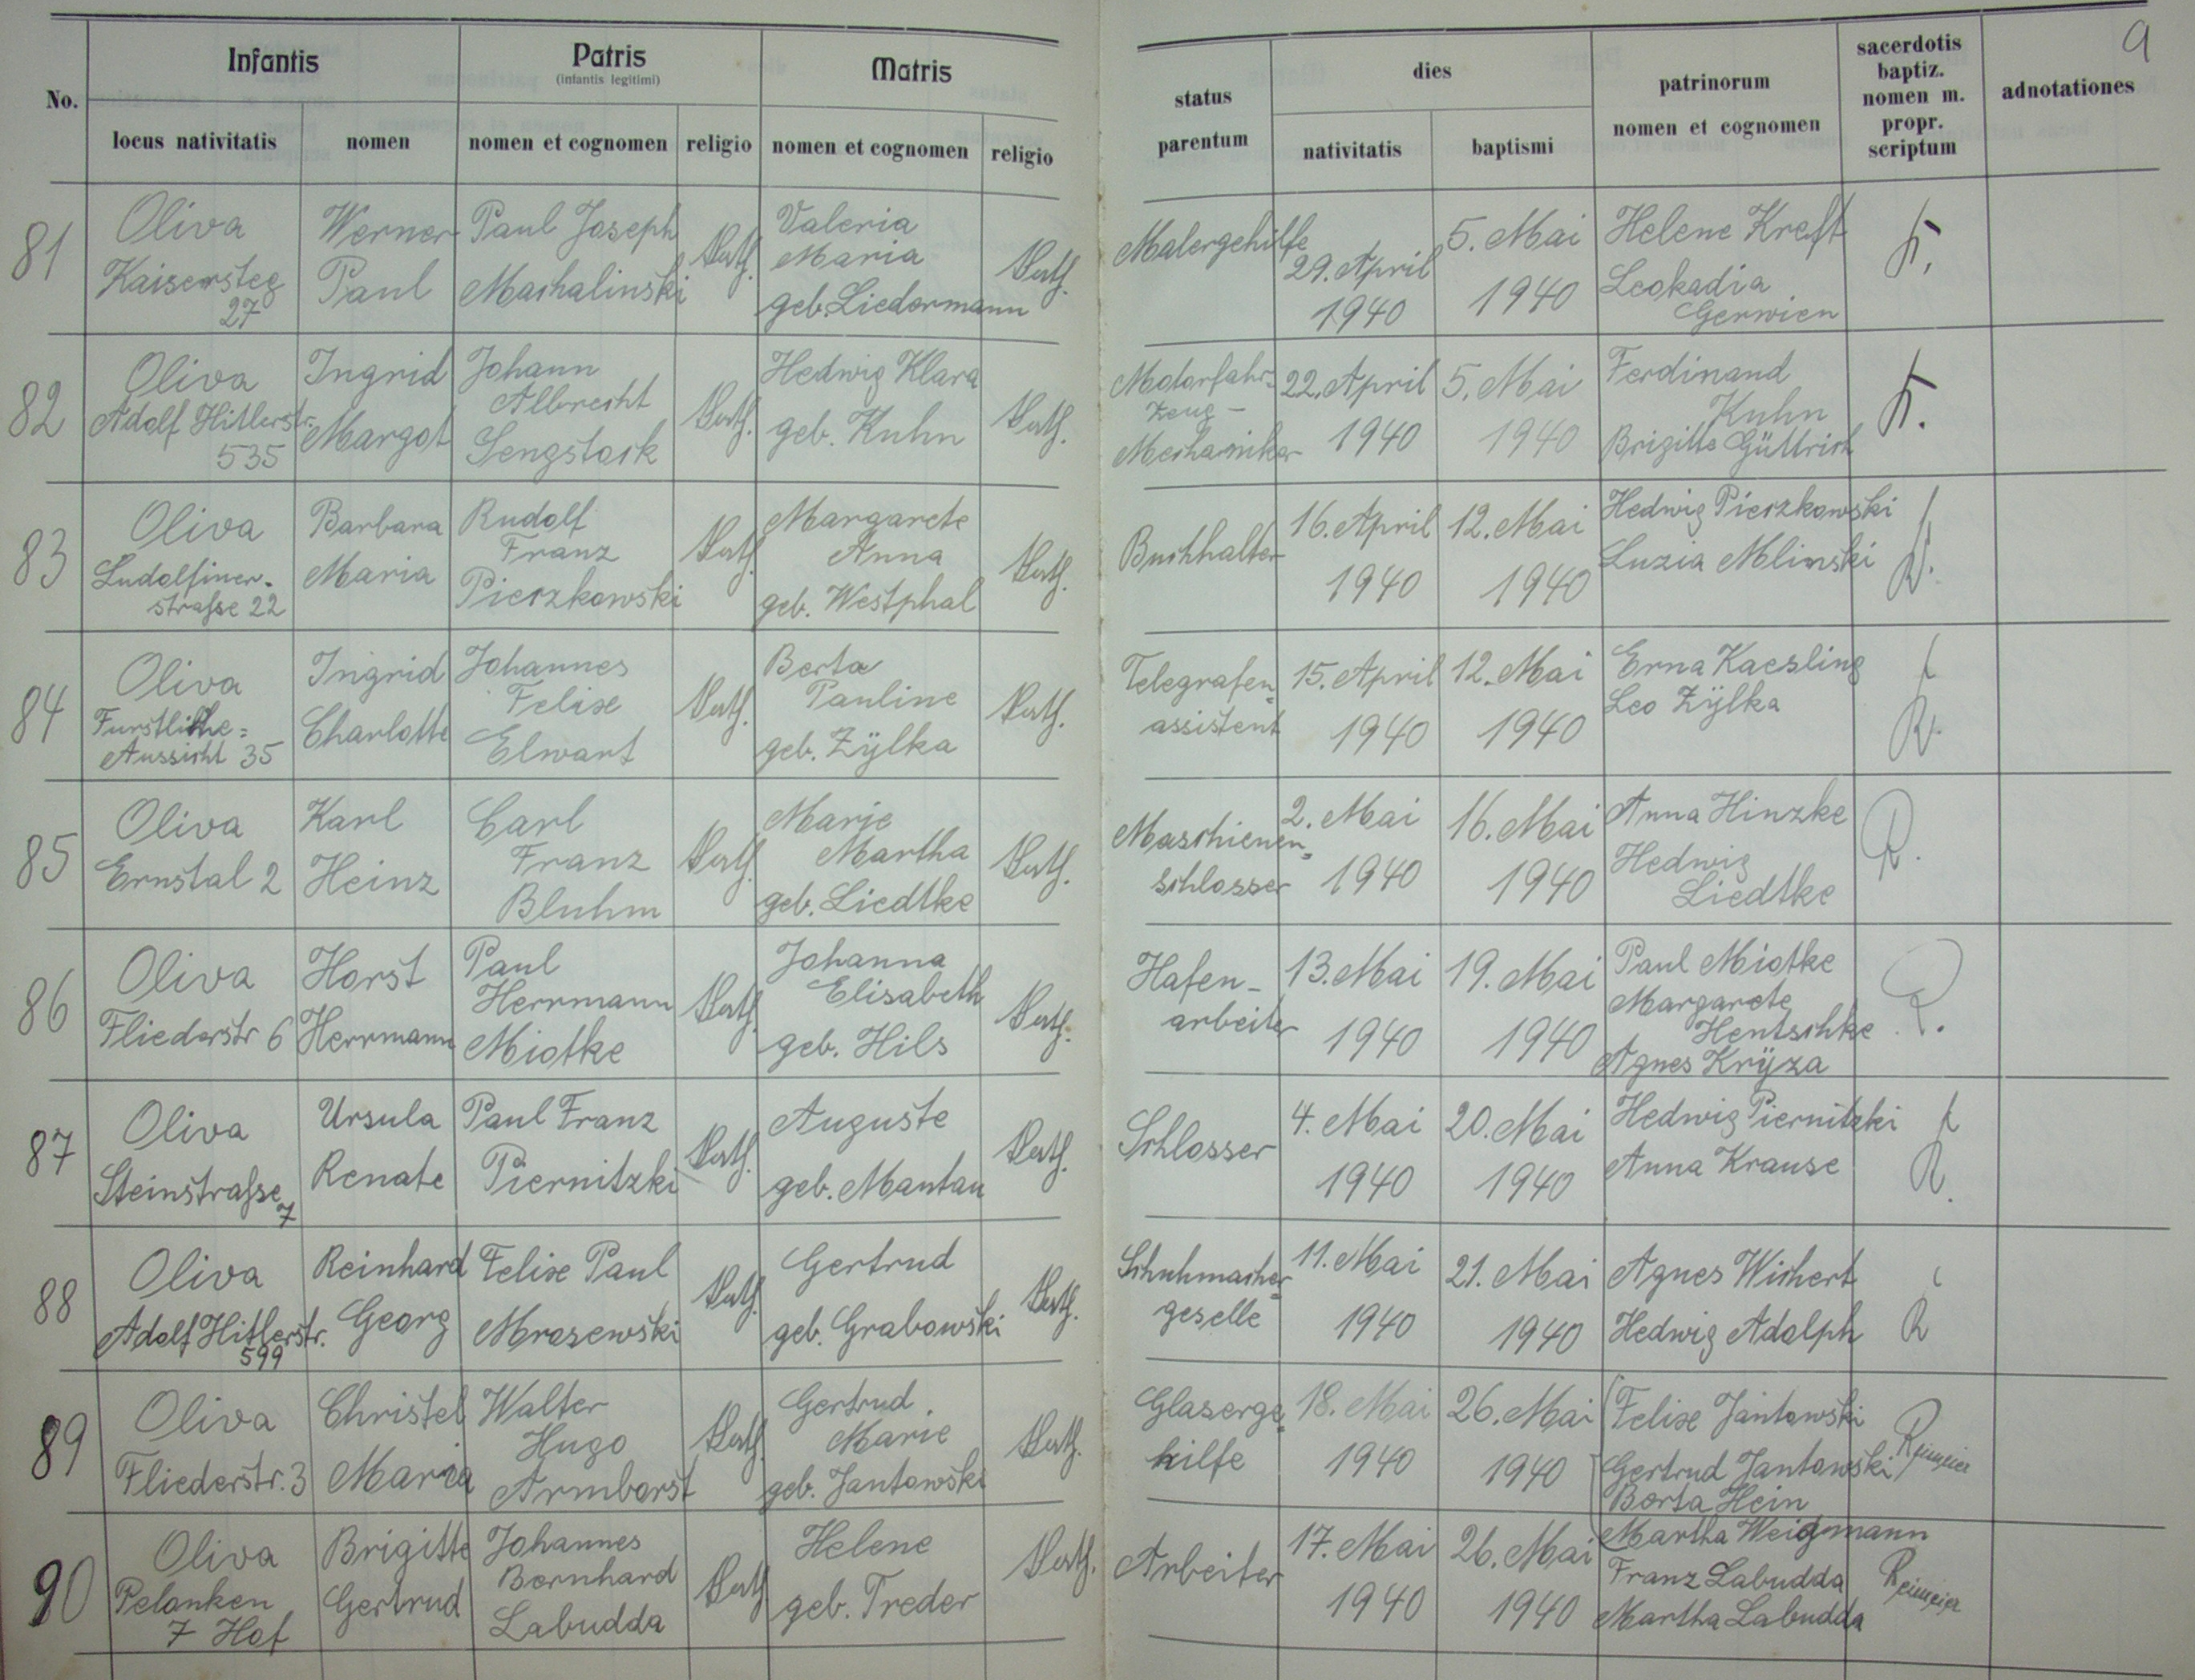 9
No.
Infantis
locus nativitatis
nomen
Patris
(infantis legitimi)
nomen et cognomen
religio
Matris
nomen et cognomen
religio
status
parentum
dies
nativitatis
baptismi
patrinorum
nomen et cognomen
sacerdotis
baptiz.
nomen m.
propr.
scriptum
adnotationes
81
Oliva
Kaisersteg
27
Werner
Paul
Paul Joseph
Machalinski
Kath.
Valeria
Maria
geb. Liedermann
Kath.
Malergehilfe
29. April
1940
5. Mai
1940
Helene Kreft
Leokadia
Gerwien
K.
82
Oliva
Adolf Hitlerstr.
535
Ingrid
Margot
Johann
Albrecht
Sengstock
Kath.
Hedwig Klara
geb. Kuhn
Kath.
Motorfahr-
zeug-
Mechaniker
22. April
1940
5. Mai
1940
Ferdinand
Kuhn
Brigitte Güttrich
K.
83
Oliva
Ludolfiner-
strasse 22
Barbara
Maria
Rudolf
Franz
Pieczkowski
Kath.
Margarete
Anna
geb. Westphal
Kath.
Buchhalter
16. April
1940
12. Mai
1940
Hedwig Pieczkowski
Luzia Mlinski
84
Oliva
Furstliche=
Aussicht 35
Ingrid
Charlotte
Johannes
Felix
Elwart
Kath.
Berta
Pauline
geb. Zÿlka
Kath.
Telegrafen=
assistent
15. April
1940
12. Mai
1940
Erna Kaesling
Leo Zÿlka
R.
85
Oliva
Ernstal 2
Karl
Heinz
Carl
Franz
Bluhm
Kath.
Marie
Martha
geb. Liedtke
Kath.
Maschienen=
schlosser
2. Mai
1940
16. Mai
1940
Anna Hinzke
Hedwig
Liedtke
R.
86
Oliva
Fliederstr 6
Horst
Herrmann
Paul
Herrmann
Miotke
Kath.
Johanna
Elisabeth
geb. Hils
Kath.
Hafen-
arbeiter
13. Mai
1940
19. Mai
1940
Paul Miotke
Margarete
Hentschke
Agnes Krÿza
R.
87
Oliva
Steinstrasse
7
Ursula
Renate
Paul Franz
Piernitzki
Kath.
Auguste
geb. Mantau
Kath.
Schlosser
4. Mai
1940
20. Mai
1940
Hedwig Piernitzki
Anna Krause
R.
88
Oliva
Adolf Hitlerstr.
599
Reinhard
Georg
Felix Paul
Mrosewski
Kath.
Gertrud
geb. Grabowski
Kath.
Schuhmacher=
geselle
11. Mai
1940
21. Mai
1940
Agnes Wichert
Hedwig Adolph
R
89
Oliva
Fliederstr. 3
Christel
Maria
Walter
Hugo
Armborst
Kath.
Gertrud
Marie
geb. Jantowski
Kath.
Glaserge=
hilfe
18. Mai
1940
26. Mai
1940
Felix Jantowski
Gertrud Jantowski
Berta Hein
90
Oliva
Pelonken
7 Hof
Brigitte
Gertrud
Johannes
Bernhard
Labudda
Kath
Helene
geb. Treder
Kath.
Arbeiter
17. Mai
1940
26. Mai
1940
Martha Weigmann
Franz Labudda
Martha Labudda